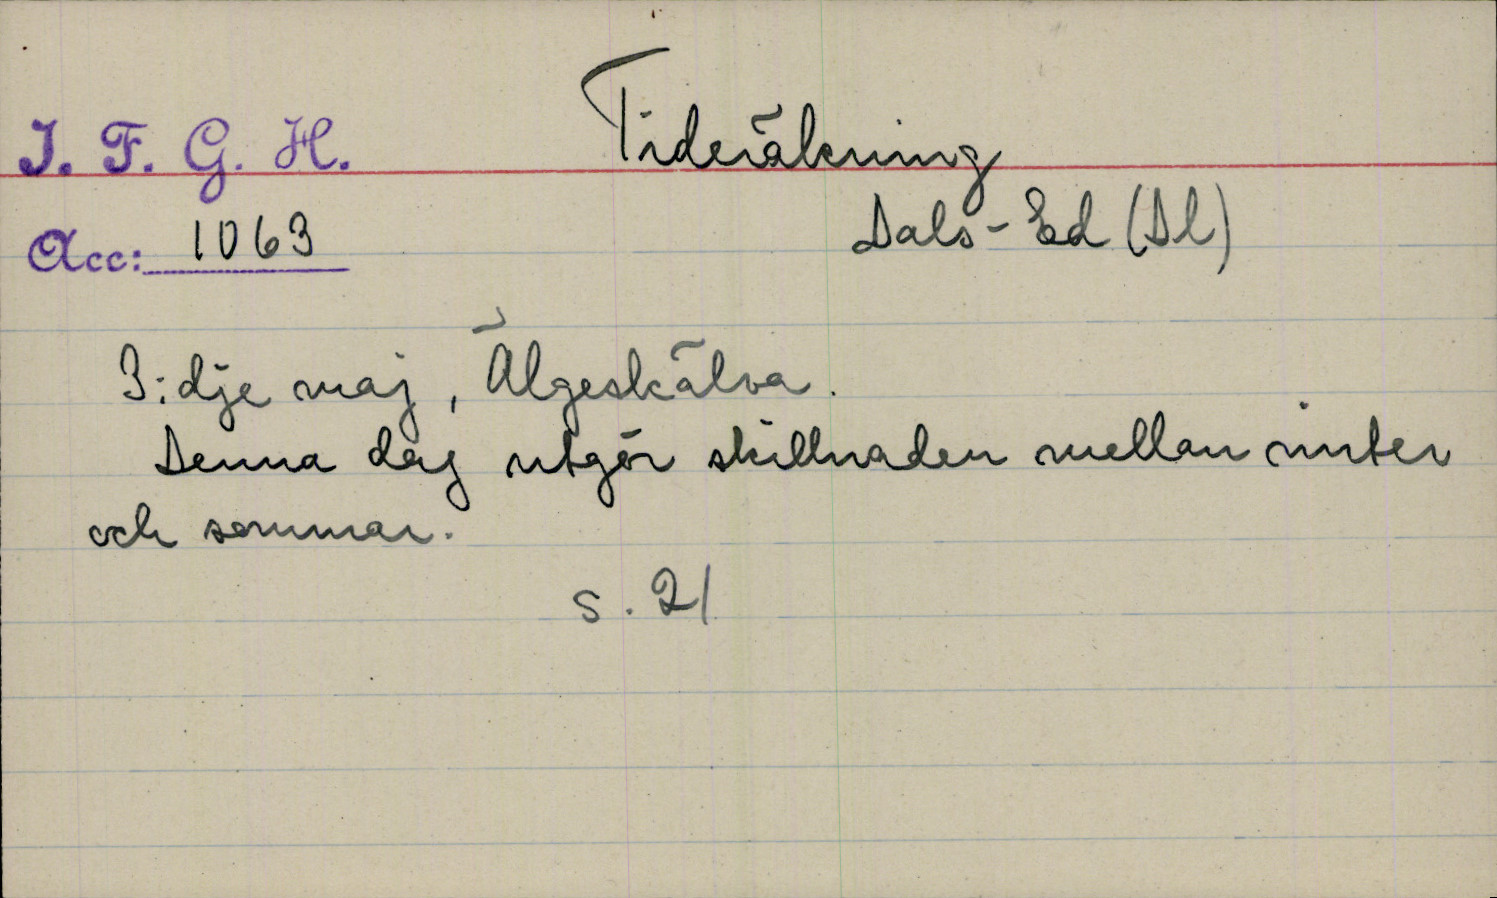 Tideräkning
I. F. G. H.
Dals-Ed (Dl)
Acc: 1063
3:dje maj, Älgeskälva.
Denna dag utgör skillnaden mellan vinter
och sommar.
s. 21